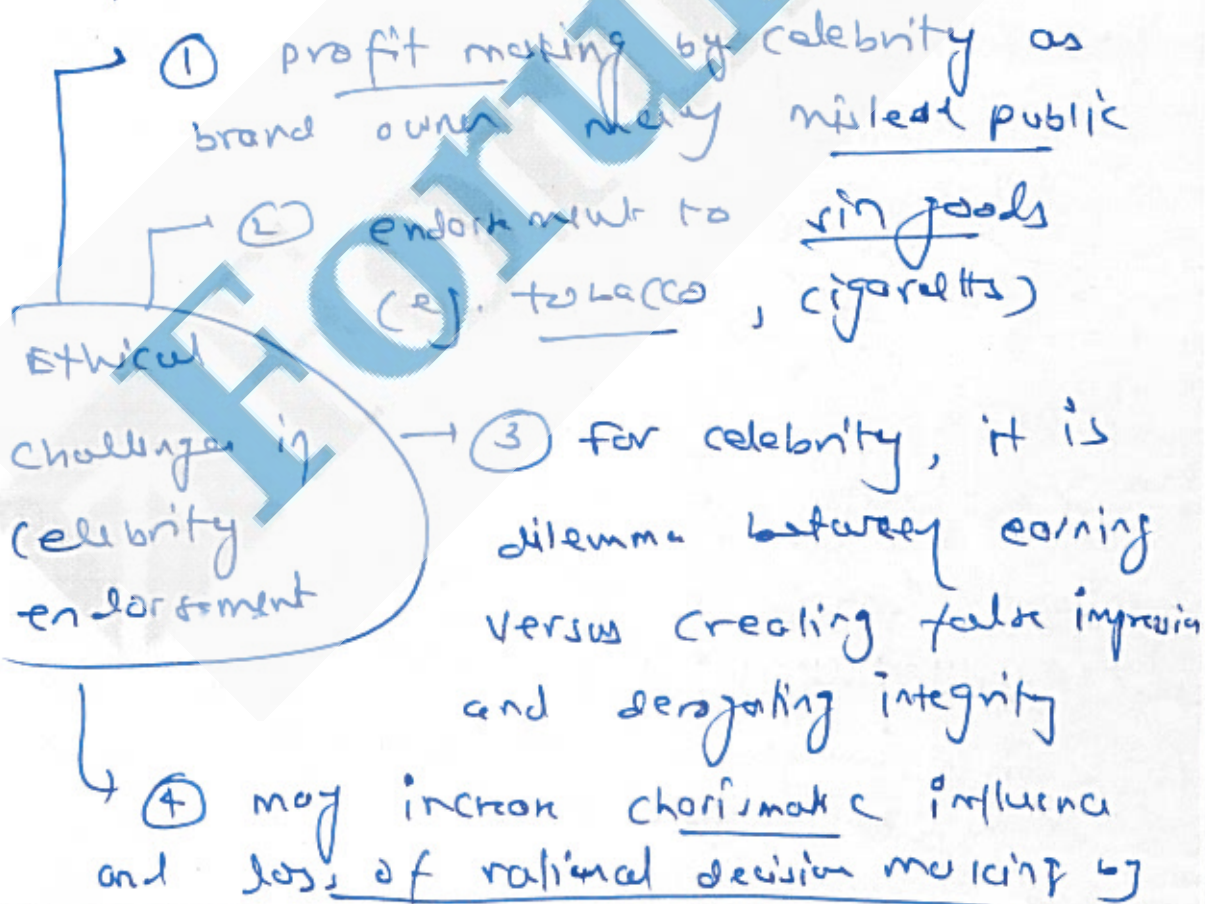 ① profit making by celebrity as
brand owner may mislead public
② endorsement to sin goods
(eg. tobacco, cigarettes)
Ethical
challenges in
celebrity
endorsement
③ For celebrity, it is
dilemma between earning
versus creating false impression
and derogating integrity
④ may increase charismatic influence
and loss of rational decision making by
Foru